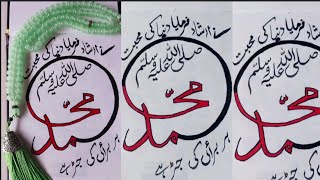 ارشاد فرمایا دنیا کی محبت
صلی اللہ علیہ وسلم
محمد
ہر برائی کی جڑ ہے
ارشاد فرمایا دنیا کی محبت
صلی اللہ علیہ وسلم
محمد
ہر برائی کی جڑ ہے
دنیا کی محبت
صلی اللہ علیہ وسلم
محمد
ہر برائی کی جڑ ہے